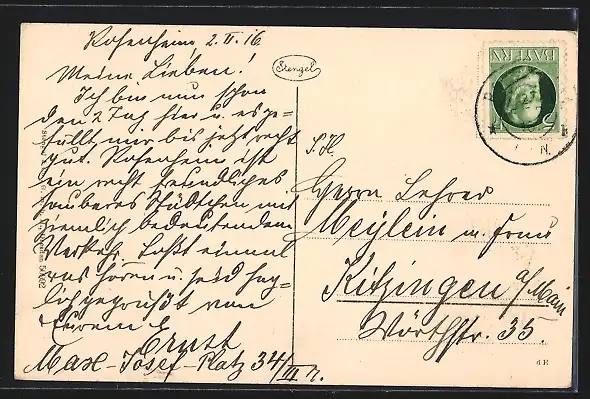 Rosenheim 2. II. 16
Meine Lieben!
Ich bin nun schon
den 2 Tag hier u. es ge-
fällt mir bis jetzt recht
gut. Rosenheim ist
ein recht freundliches
sauberes Städtchen mit
ziemlich bedeutendem
Verkehr. Laßt einmal
was hören u. seid herz-
lich gegrüßt von
Eurem Ernst
Max-Josef-Platz 34/III r.
Stengel
BAYERN
S. H.
Herrn Lehrer
Meylein m. Frau
Kitzingen a/Main
Wörthstr. 35.